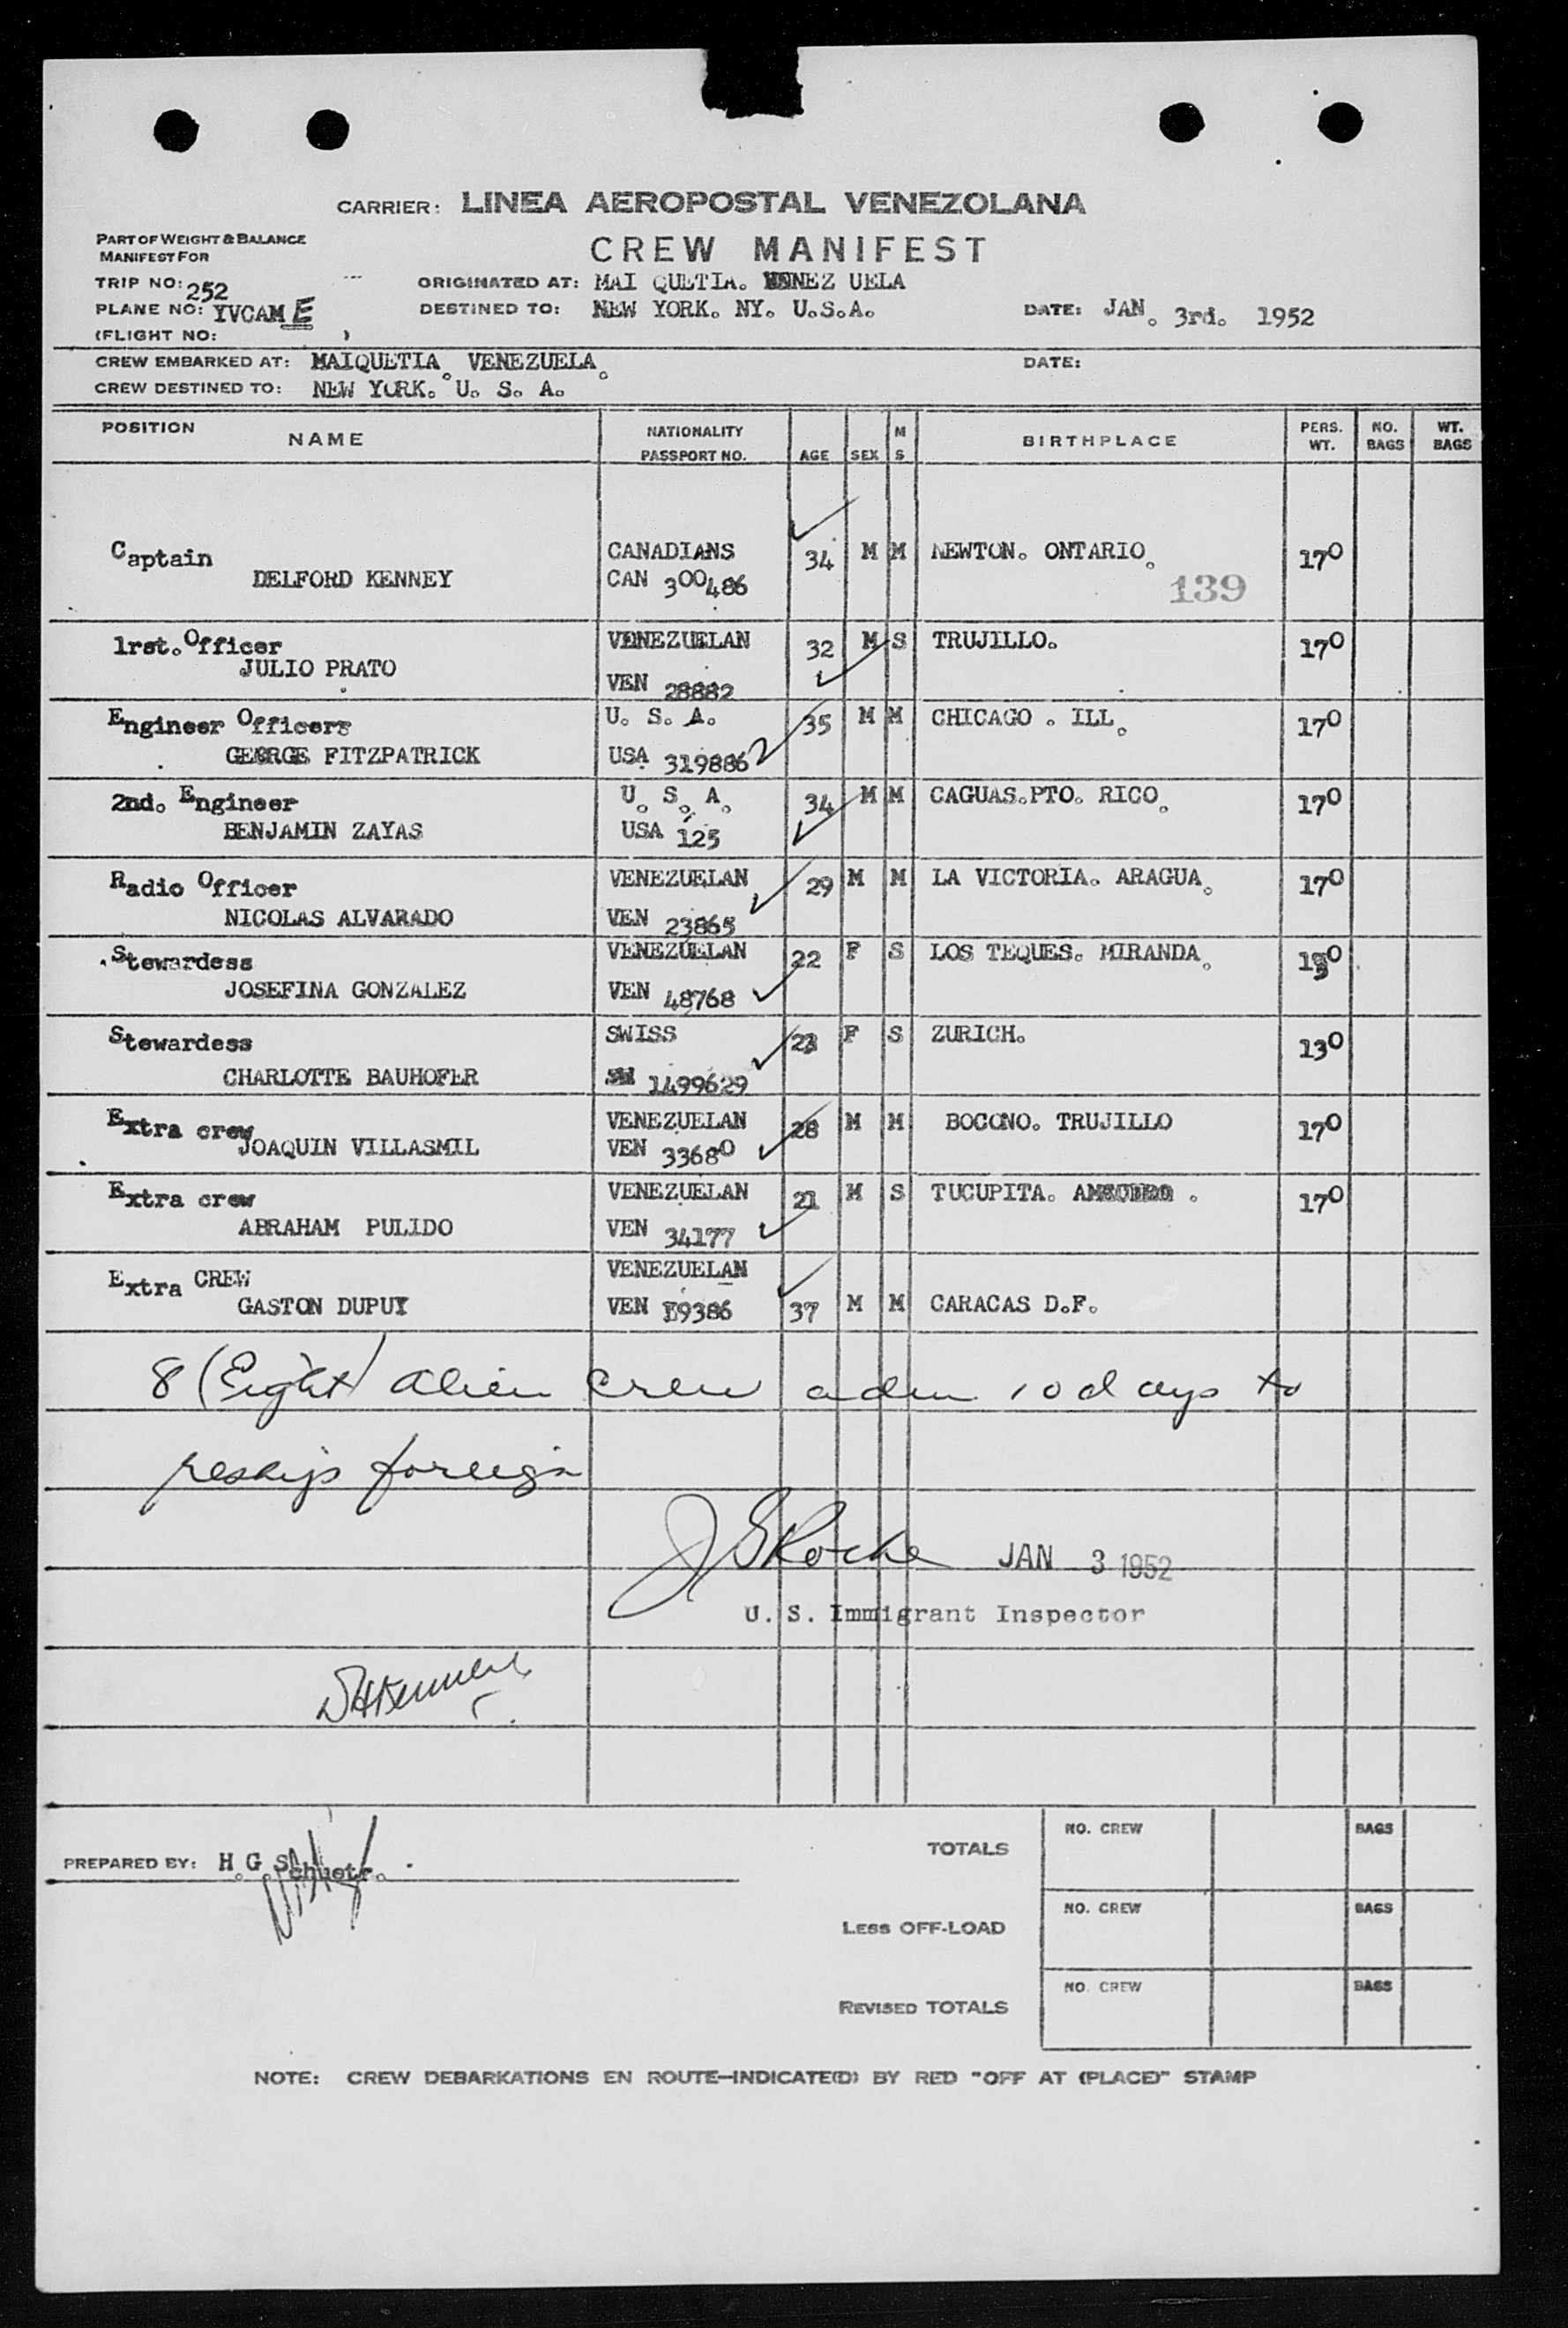 CARRIER: LINEA AEROPOSTAL VENEZOLANA
PART OF WEIGHT & BALANCE
MANIFEST FOR
CREW MANIFEST
TRIP NO: 252 ORIGINATED AT: MAI QUETIA. VENEZ UELA
PLANE NO: YVCAM E DESTINED TO: NEW YORK. NY. U.S.A. DATE: JAN. 3rd. 1952
(FLIGHT NO: )
CREW EMBARKED AT: MAIQUETIA. VENEZUELA. DATE:
CREW DESTINED TO: NEW YORK. U. S. A.
POSITION NAME NATIONALITY PASSPORT NO. AGE SEX M S BIRTHPLACE PERS. WT. NO. BAGS WT. BAGS
Captain CANADIANS 34 M M NEWTON. ONTARIO. 170
DELFORD KENNEY CAN 300486 139
1rst. Officer VENEZUELAN 32 M S TRUJILLO. 170
JULIO PRATO VEN 28882
Engineer Officers U. S. A. 35 M M CHICAGO . ILL. 170
GEORGE FITZPATRICK USA 319886
2nd. Engineer U. S. A. 34 M M CAGUAS.PTO. RICO. 170
BENJAMIN ZAYAS USA 125
Radio Officer VENEZUELAN 29 M M LA VICTORIA. ARAGUA. 170
NICOLAS ALVARADO VEN 23865
Stewardess VENEZUELAN 22 F S LOS TEQUES. MIRANDA. 130
JOSEFINA GONZALEZ VEN 48768
Stewardess SWISS 23 F S ZURICH. 130
CHARLOTTE BAUHOFER SW 1499629
Extra crew VENEZUELAN 28 M M BOCONO. TRUJILLO 170
JOAQUIN VILLASMIL VEN 33680
Extra crew VENEZUELAN 21 M S TUCUPITA. 170
ABRAHAM PULIDO VEN 34177
Extra CREW VENEZUELAN
GASTON DUPUY VEN 37 M M CARACAS D.F.
8 (Eight) alien crew adm 10 days to
reship foreign
J S Roche JAN 3 1952
U. S. Immigrant Inspector
PREPARED BY: H. G. Schustr.
TOTALS NO. CREW BAGS
LESS OFF-LOAD NO. CREW BAGS
REVISED TOTALS NO. CREW BAGS
NOTE: CREW DEBARKATIONS EN ROUTE—INDICATE(D) BY RED "OFF AT (PLACE)" STAMP